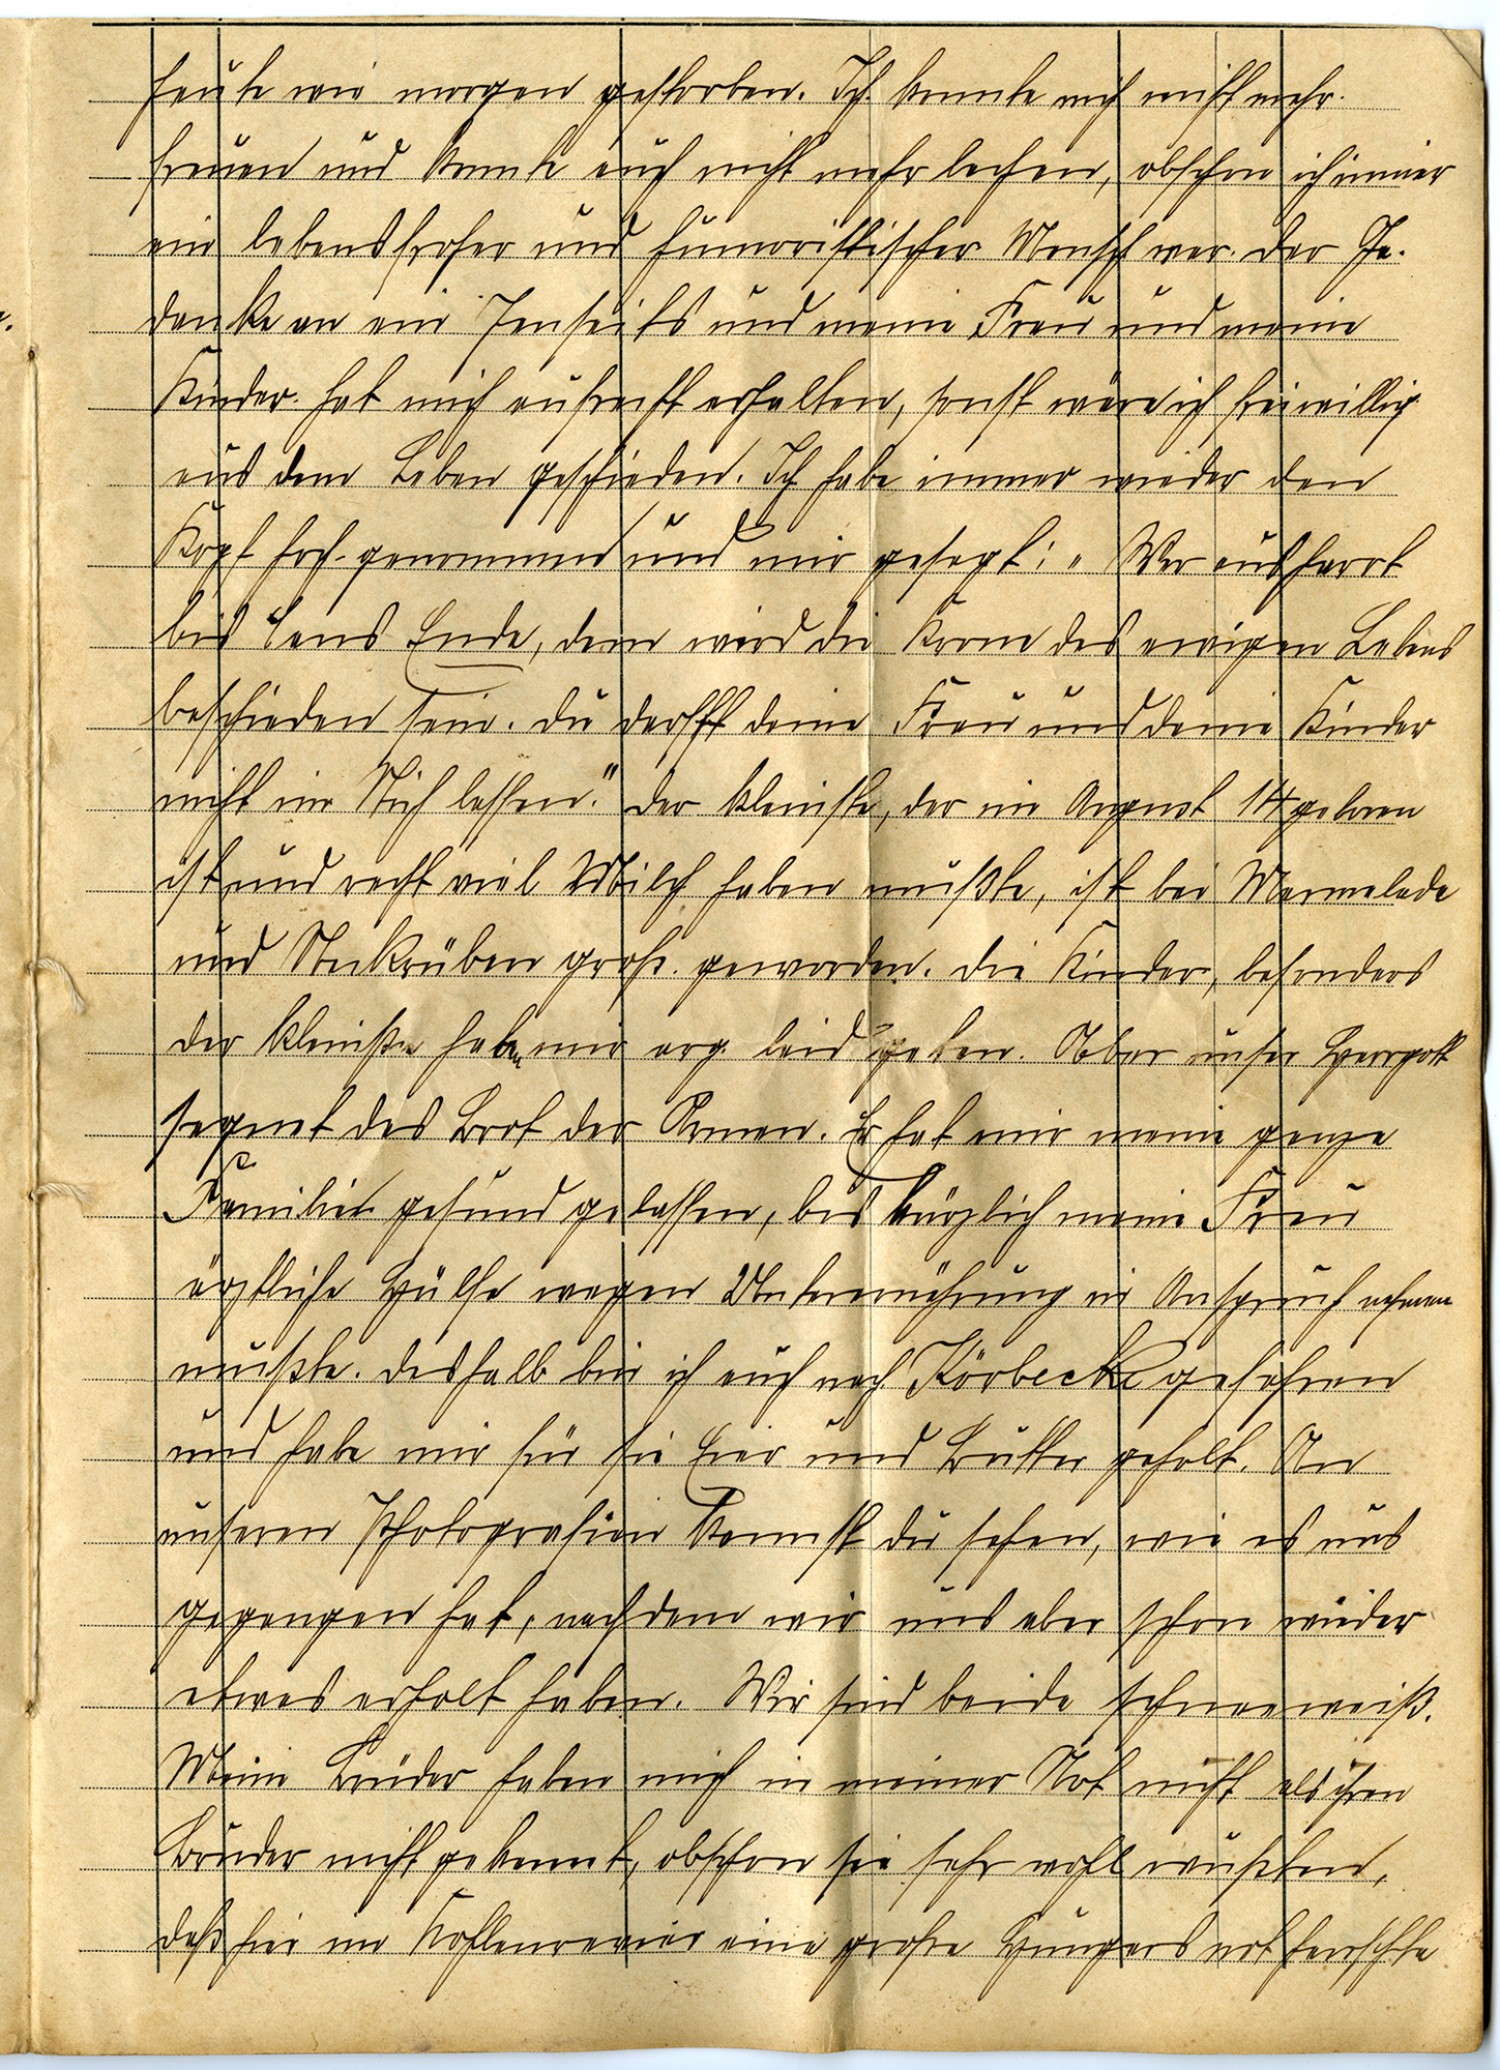 heute wie morgen gestorben. Ich konnte mich nicht mehr
freuen und konnte auch nicht mehr lachen, obschon ich immer
ein lebensfroher und humoristischer Mensch war. Der Ge-
danke an ein Jenseits und meine Frau und meine
Kinder hat mich aufrecht erhalten, sonst wäre ich freiwillig
aus dem Leben geschieden. Ich habe immer wieder den
Kopf hoch genommen und mir gesagt: „Wer ausharrt
bis ans Ende, dem wird die Krone des ewigen Lebens
beschieden sein. Du darfst deine Frau und deine Kinder
nicht im Stich lassen." Der kleinste, der im August 14 geboren
ist und recht viel Milch haben mußte, ist bei Marmelade
und Steckrüben groß geworden. Die Kinder, besonders
der kleinste haben mir arg leid getan. Aber unser Herrgott
segnet das Brot der Armen. Er hat mir meine ganze
Familie gesund gelassen, bis kürzlich meine Frau
ärztliche Hülfe wegen Unterernährung in Anspruch nehmen
mußte. Deshalb bin ich auch nach Körbecke gefahren
und habe mir für sie Eier und Butter geholt. An
unseren Photografien kannst du sehen, wie es uns
gegangen hat, nachdem wir uns aber schon wieder
etwas erholt haben. Wir sind beide schneeweiß.
Meine Brüder haben mich in meiner Not nicht als ihren
Bruder nicht gekannt, obschon sie sehr wohl wußten,
daß hier im Kohlenrevier eine große Hungersnot herrschte